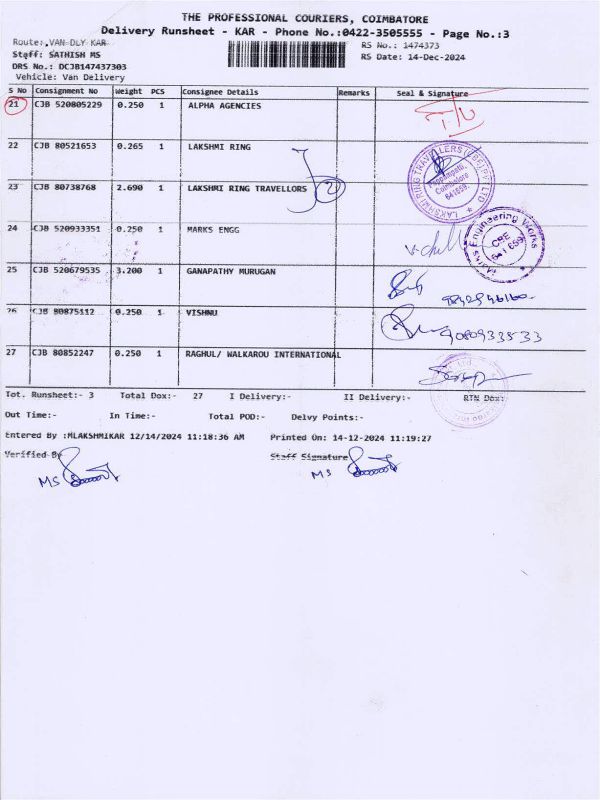 THE PROFESSIONAL COURIERS, COIMBATORE
Delivery Runsheet - KAR - Phone No.:0422-3505555 - Page No.:3
Route: VAN DLY KAR
RS No.: 1474373
Staff: SATHISH MS
RS Date: 14-Dec-2024
DRS No.: DCJB147437303
Vehicle: Van Delivery
S No Consignment No Weight PCS Consignee Details Remarks Seal & Signature
21 CJB 520805229 0.250 1 ALPHA AGENCIES
22 CJB 80521653 0.265 1 LAKSHMI RING
23 CJB 80738768 2.690 1 LAKSHMI RING TRAVELLORS 2
LAKSHMI RING TRAVELLERS (CBE) PVT LTD
Coimbatore
641659.
24 CJB 520933351 0.250 1 MARKS ENGG
Marks Engineering Works
CBE
641 659
25 CJB 520679535 3.200 1 GANAPATHY MURUGAN
26 CJB 80875112 0.250 1 VISHNU
27 CJB 80852247 0.250 1 RAGHUL/ WALKAROU INTERNATIONAL
Tot. Runsheet:- 3 Total Dox:- 27 I Delivery:- II Delivery:- RTN Dox:
Out Time:- In Time:- Total POD:- Delvy Points:-
Entered By :MLAKSHMIKAR 12/14/2024 11:18:36 AM Printed On: 14-12-2024 11:19:27
Verified By Staff Signature
MS MS